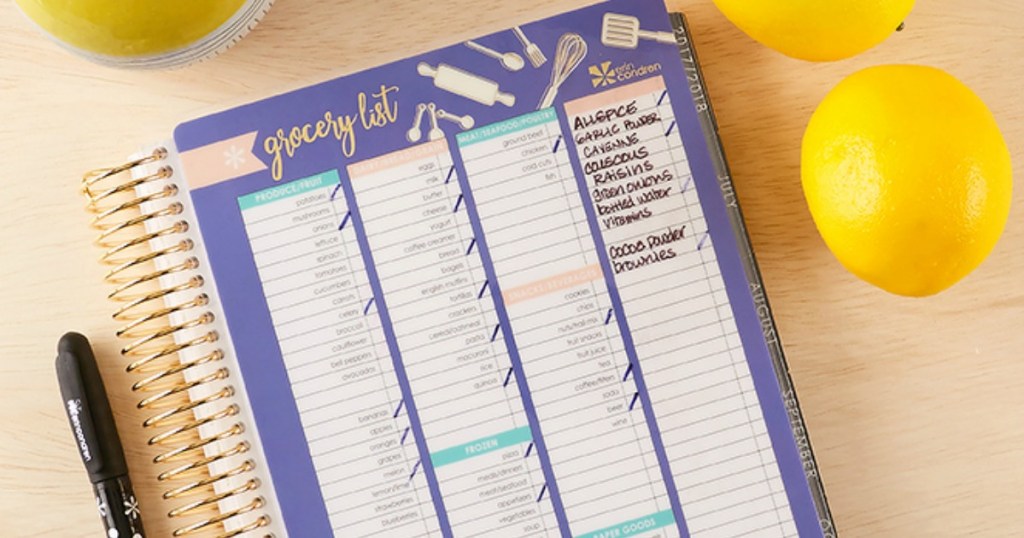 grocery list
erin
condren
2017/2018
PRODUCE/FRUIT
potatoes
mushrooms
onions
lettuce
spinach
tomatoes
cucumbers
carrots
celery
broccoli
cauliflower
bell peppers
avocados
bananas
apples
oranges
grapes
melon
lemon/lime
strawberries
blueberries
eggs
milk
butter
cheese
yogurt
coffee creamer
bread
bagels
english muffins
tortillas
crackers
cereal/oatmeal
pasta
macaroni
rice
quinoa
FROZEN
pizza
meals/dinners
meat/seafood
appetizers
vegetables
soup
MEAT/SEAFOOD/POULTRY
ground beef
chicken
cold cuts
fish
SNACKS/BEVERAGES
cookies
chips
nuts/trail mix
fruit snacks
fruit juice
tea
coffee/filters
soda
beer
wine
PAPER GOODS
ALLSPICE
GARLIC POWDER
CAYENNE
COUSCOUS
RAISINS
green onions
bottled water
vitamins
cocoa powder
brownies
JULY
AUGUST
SEPTEMBER
erin condren